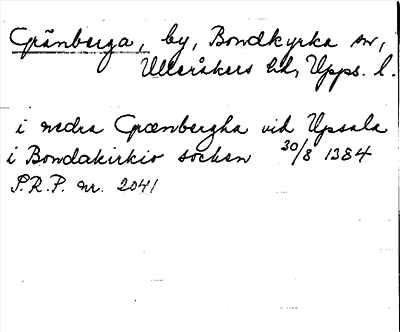 Gränberga, by, Bondkyrka sn,
Ulleråkers hd, Upps. l.
i nedra Grænbergha vid Upsala
i Bondakirkio socken 30/8 1384
S.R.P. nr. 2041